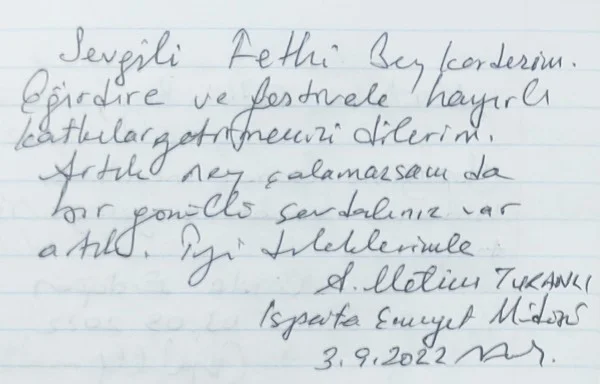 Sevgili Fethi Bey kardeşim.
Eğirdire ve festivale hayırlı
katkılar getirmenizi dilerim.
Artık ney çalamazsam da
bir gönüllü sevdalınız var
artık. İyi dileklerimle
A. Metin TURANLI
Isparta Emniyet Müdürü
3.9.2022